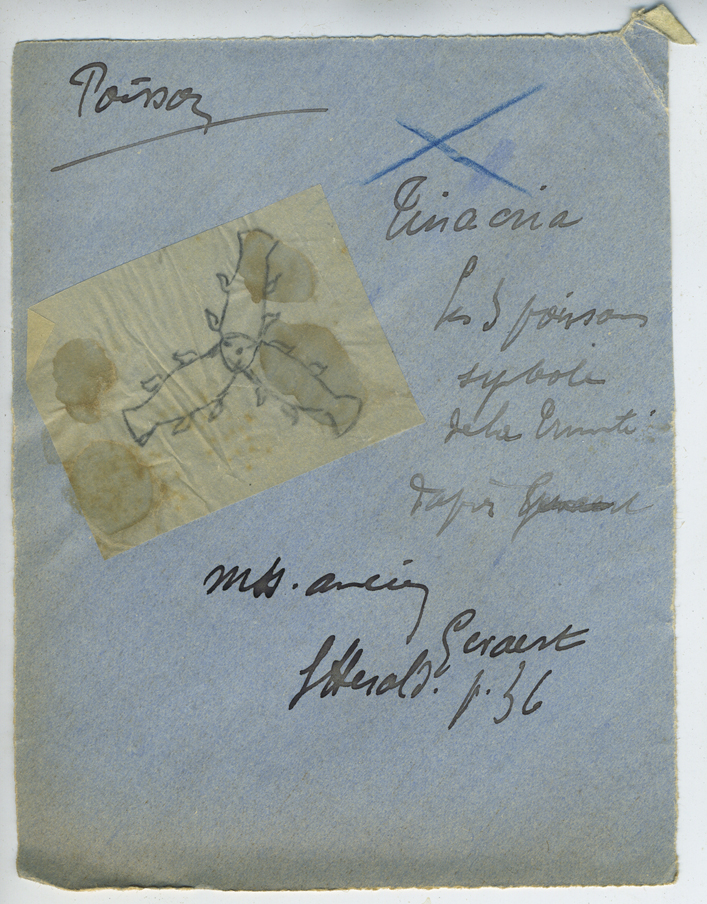 Poisson
Trinacria
les 3 poissons
symbole
de la Trinité
d'après Geraert
mss. ancien
Geraert
Herald. p. 36